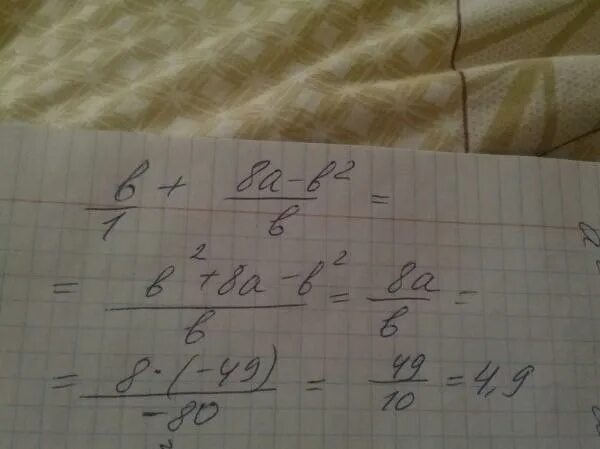 в/1 + 8а-в²/в =
= в²+8а-в²/в = 8а/в =
= 8·(-49)/-80 = 49/10 = 4,9